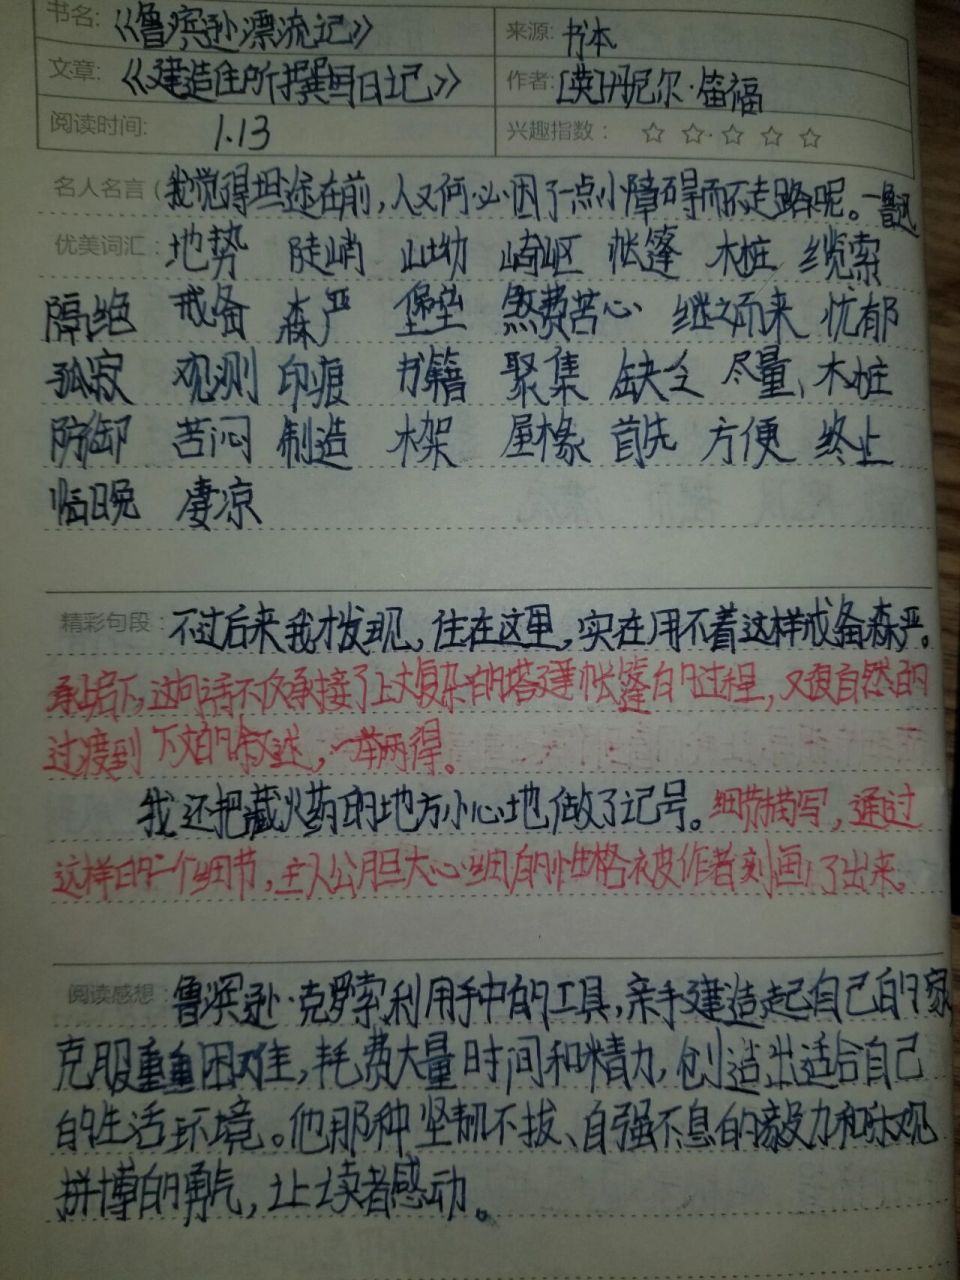 书名: 《鲁滨逊漂流记》 来源: 书本
文章: 《建造住所撰写日记》 作者: [英]丹尼尔·笛福
阅读时间: 1.13 兴趣指数: ☆ ☆ ☆ ☆ ☆
名人名言: 我觉得坦途在前,人又何必因了一点小障碍而不走路呢。—鲁迅
优美词汇: 地势 陡峭 山坳 崎岖 帐篷 木桩 缆索
隔绝 戒备 森严 堡垒 煞费苦心 继之而来 忧郁
孤寂 观测 印痕 书籍 聚集 缺乏 尽量、木桩
防御 苦闷 制造 木架 屋椽 首先 方便 终止
临晚 凄凉
精彩句段: 不过后来我才发现,住在这里,实在用不着这样戒备森严。
承上启下,这句话不仅承接了上文复杂的搭建帐篷的过程,又很自然的
过渡到下文的叙述,一举两得。
我还把藏火药的地方小心地做了记号。细节描写,通过
这样的一个细节,主人公胆大心细的性格被作者刻画了出来。
阅读感想: 鲁滨逊·克罗索利用手中的工具,亲手建造起自己的家,
克服重重困难,耗费大量时间和精力,创造出适合自己
的生活环境。他那种坚韧不拔、自强不息的毅力和乐观
拼博的勇气,让读者感动。